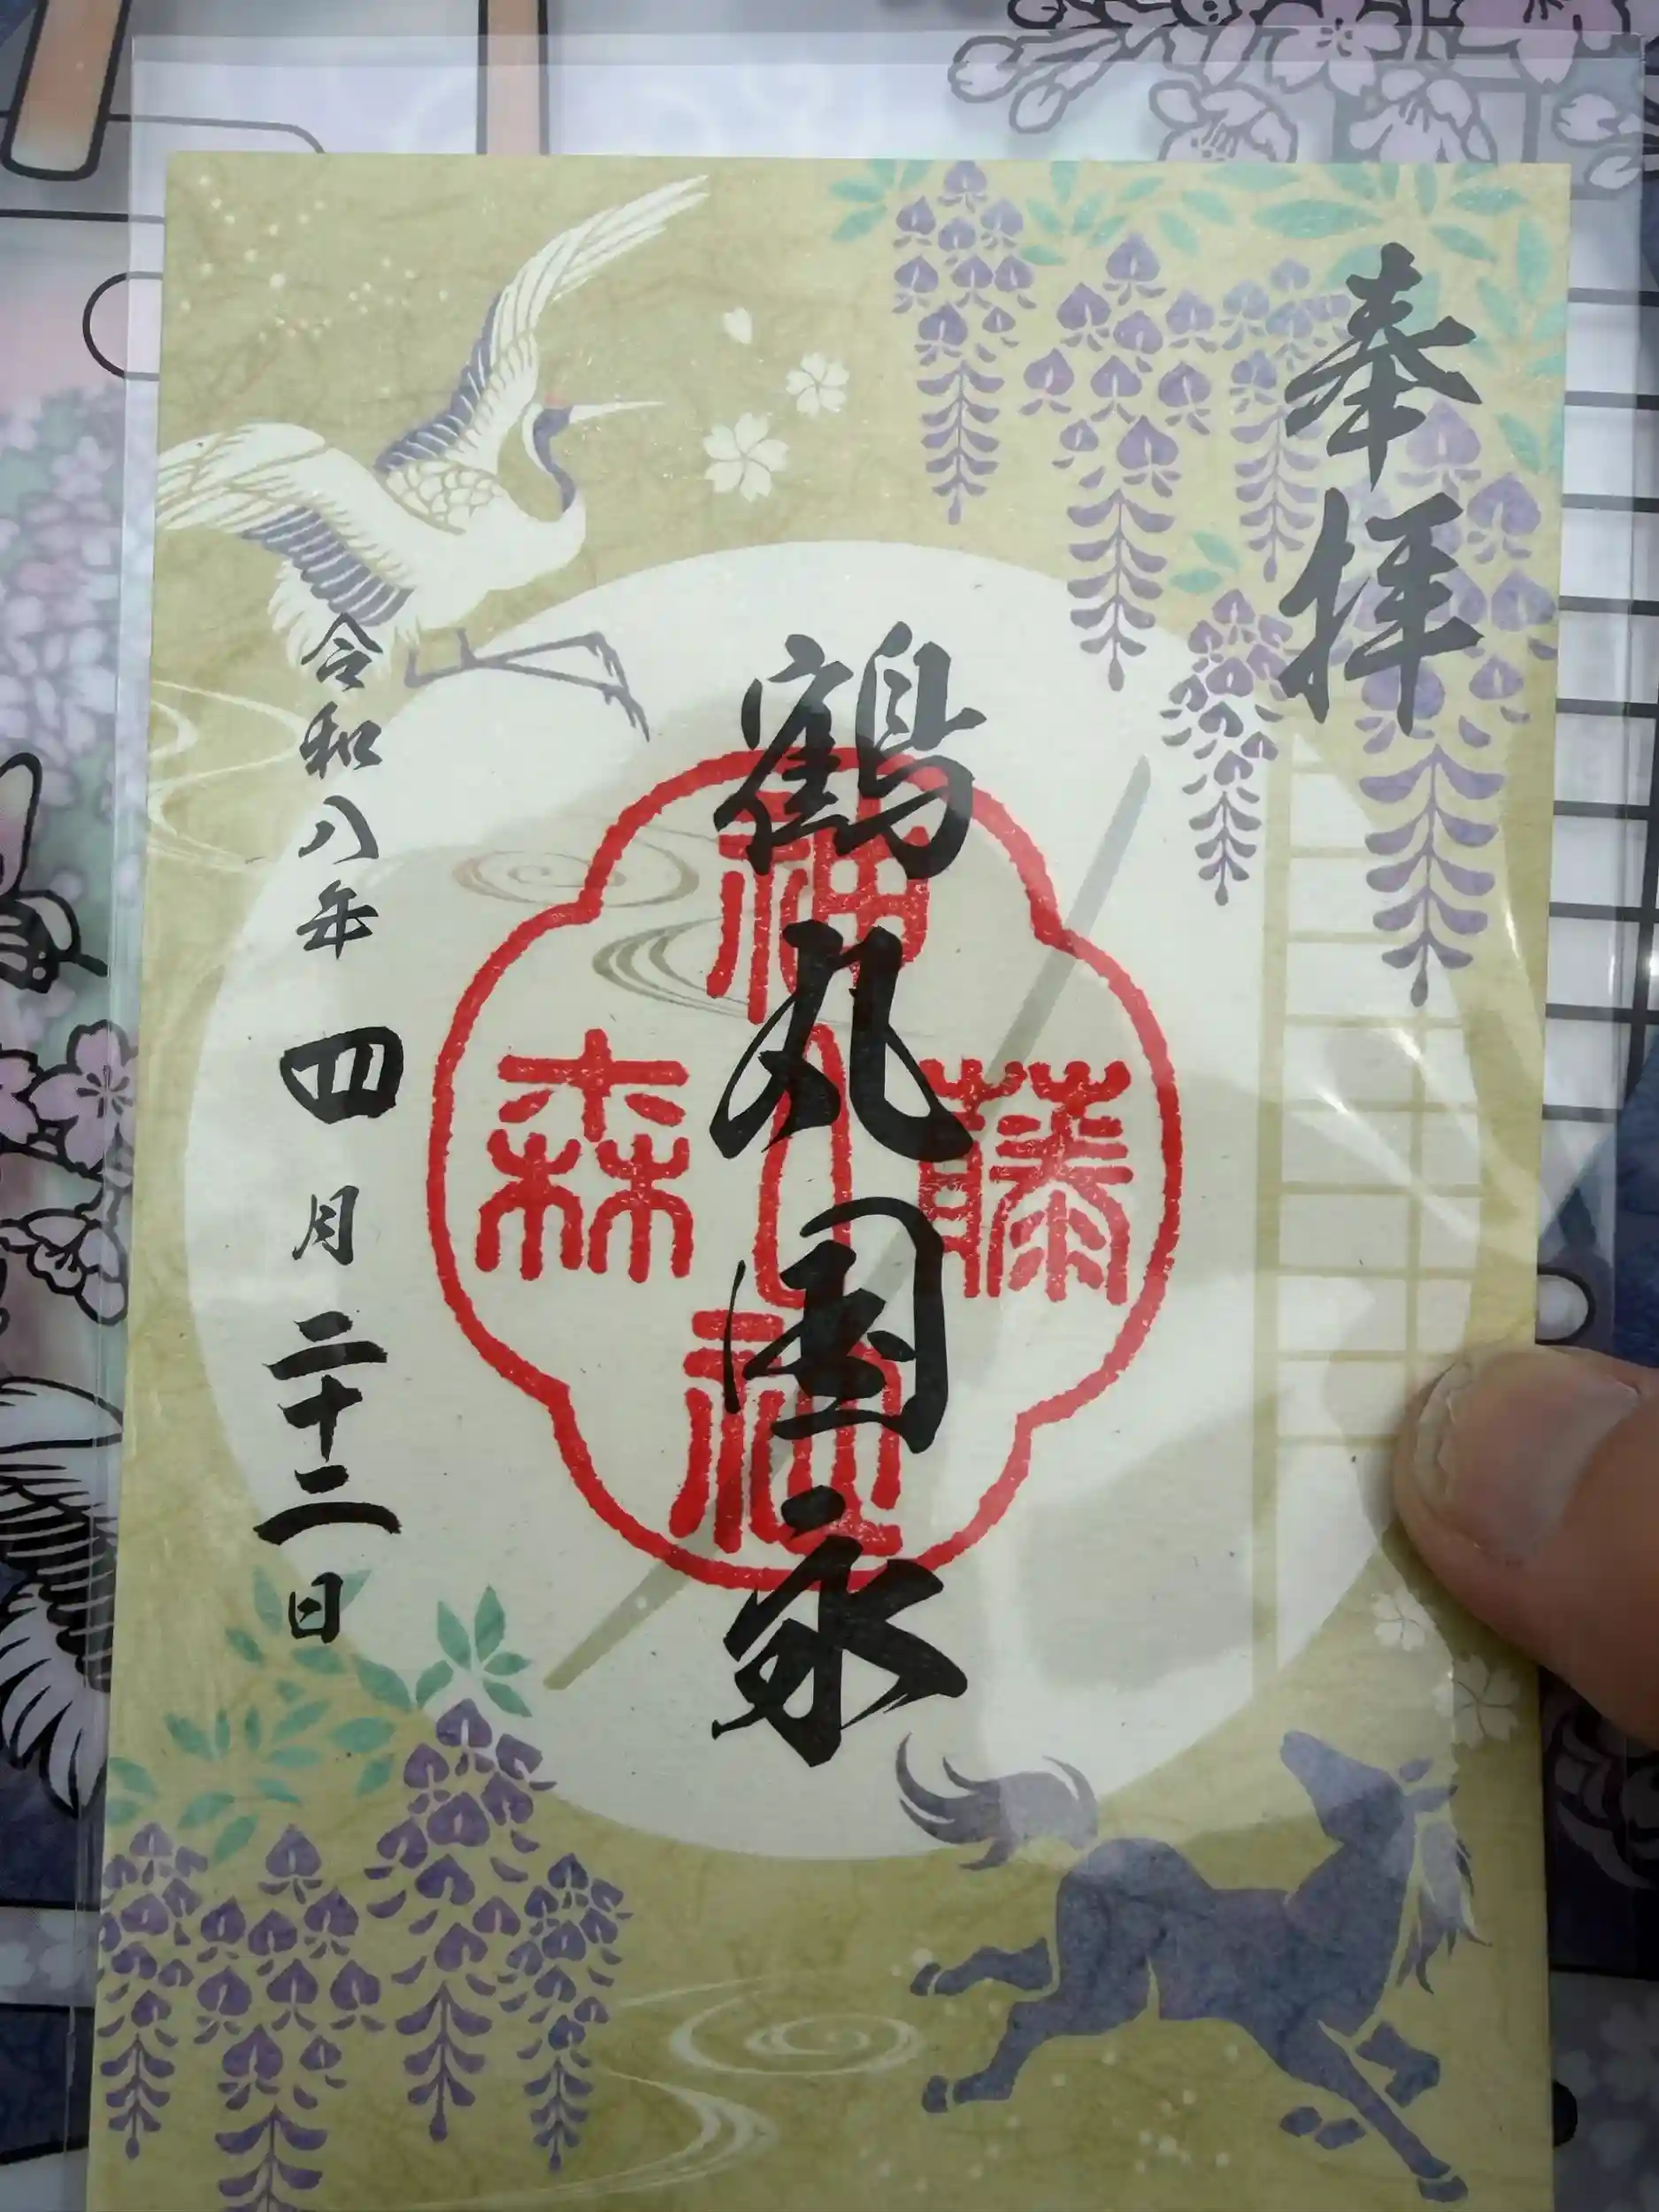 奉拝
鶴丸国永
令和八年四月二十二日
藤森神社